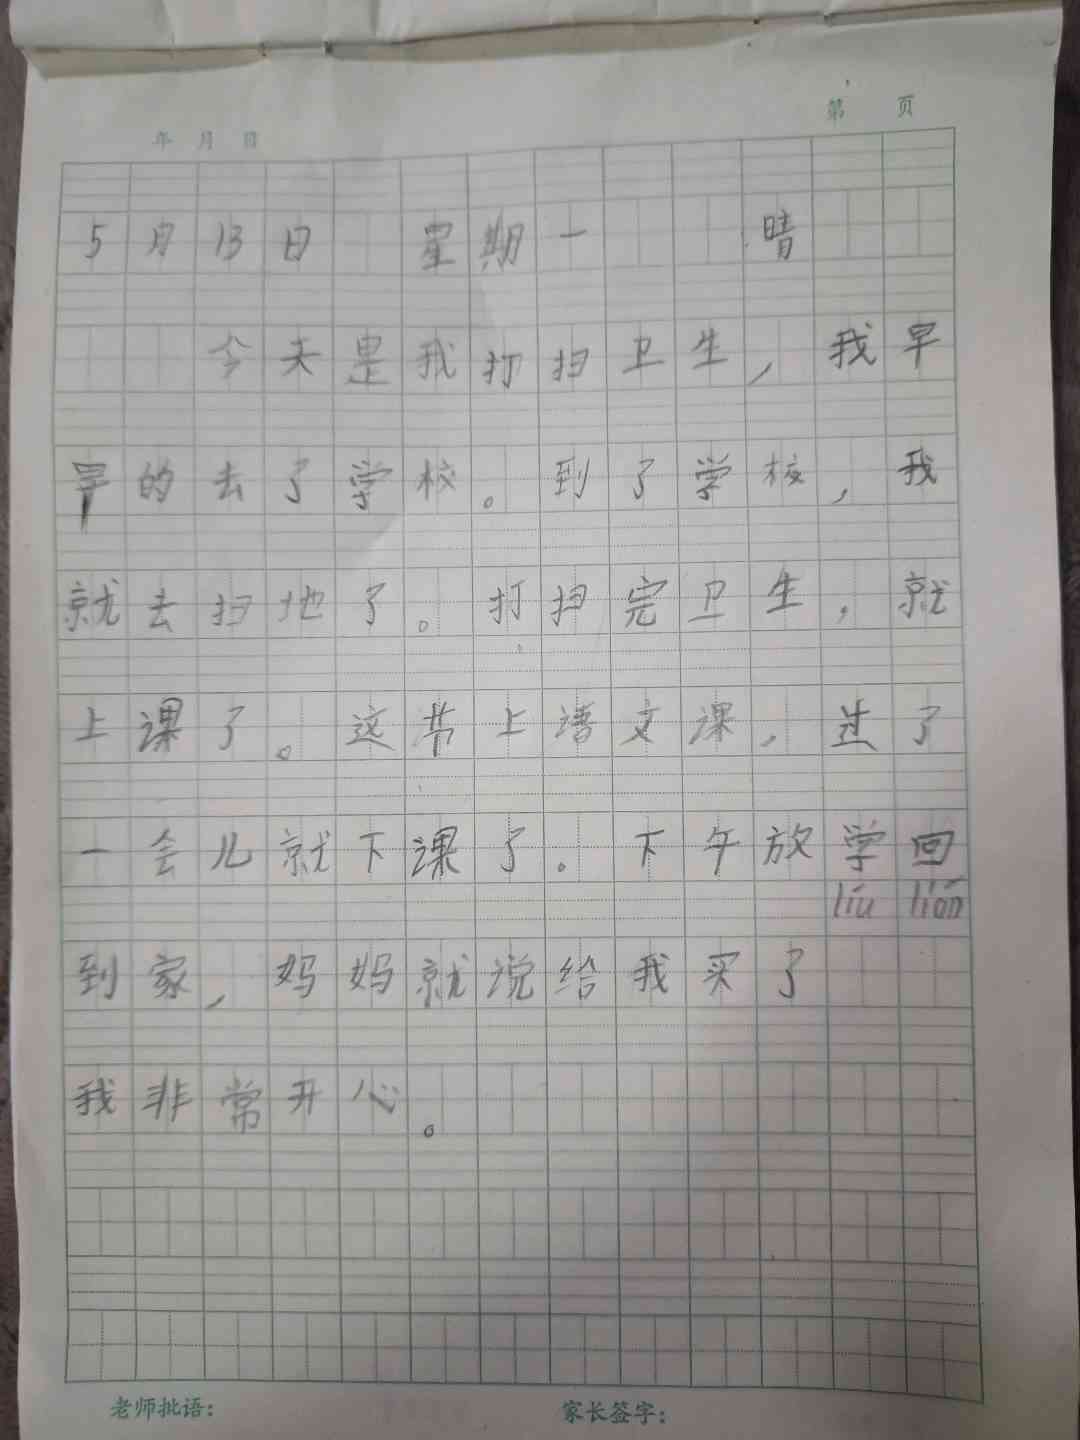 第 页
年 月 日
5月13日 星期一 晴
今天是我打扫卫生，我早
早的去了学校。到了学校，我
就去扫地了。打扫完卫生，就
上课了。这节上语文课，过了
一会儿就下课了。下午放学回
liú lián
到家，妈妈就说给我买了
我非常开心。
老师批语： 家长签字：